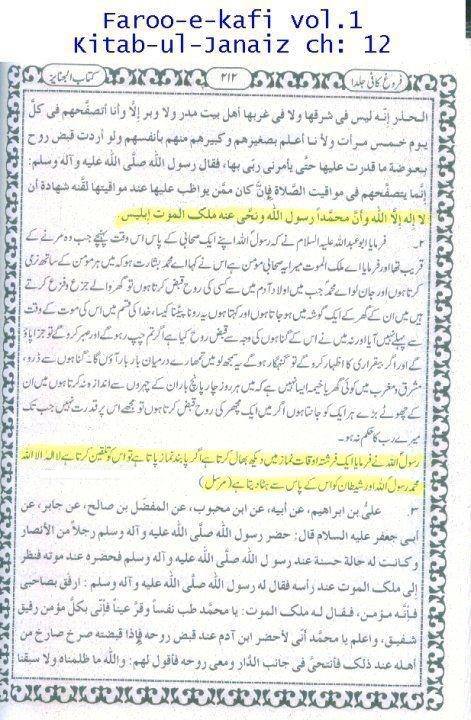 Faroo-e-kafi vol.1
Kitab-ul-Janaiz ch: 12
فروغ کافی جلد۱ ۲۱۲ کتاب الجنایز
الحذر إنّه ليس في شرقها ولا في غربها أهل بيت مدر ولا وبر إلّا وأنا أتصفّحهم في كلّ
يوم خمس مرات ولأنا أعلم بصغيرهم وكبيرهم منهم بأنفسهم ولو أردت قبض روح
بعوضة ما قدرت عليها حتّى يأمرني ربّي بها، فقال رسول الله صلّى الله عليه و آله وسلم:
إنّما يتصفّحهم في مواقيت الصّلاة فإن كان ممّن يواظب عليها عند مواقيتها لقّنه شهادة أن
لا إله إلّا الله وأنَّ محمّداً رسول الله ونحّى عنه ملك الموت إبليس.
۲۔ فرمایا ابو عبداللہ علیہ السلام نے کہ رسول اللہ اپنے ایک صحابی کے پاس اس وقت پہنچے جب وہ مرنے کے
قریب تھا اور فرمایا اے ملک الموت میرا یہ صحابی مومن ہے اس نے کہا اے محمد بشارت ہو کہ میں ہر مومن کے ساتھ نرمی
کرتا ہوں اور جان لو اے محمد جب میں اولاد آدم میں سے کسی کی روح قبض کرتا ہوں تو گھر والے جزع و فزع کرتے
ہیں میں ان کے گھر کے ایک گوشہ میں ہو جاتا ہوں اور کہتا ہوں یہ رونا پیٹنا کیسا، خدا کی قسم میں اس کی موت کے وقت
سے پہلے نہیں آیا اور نہ میں نے اس کے گناہوں کی وجہ سے قبض روح کیا ہے اگر تم چپ رہو گے اور صبر کرو گے تو جزا پاؤ
گے اور اگر بیقراری کا اظہار کرو گے تو گنہگار ہو گے یہ سمجھ لو میں تمہارے درمیان بار بار آؤں گا۔ گناہوں سے ڈرو،
مشرق و مغرب میں کوئی گھر یا خیمہ ایسا نہیں ہے کہ میں ہر روز چار پانچ بار ان کے چہروں سے اندازہ نہ کرتا ہوں میں ان
کے چھوٹے بڑے ہر ایک کو جانتا ہوں اگر میں ایک مچھر کی روح قبض کرنا چاہتا ہوں تو مجھے اس پر قدرت نہیں جب تک
میرے رب کا حکم نہ ہو۔
رسول اللہ نے فرمایا ایک فرشتہ اوقات نماز میں دیکھ بھال کرتا ہے اگر پابند نماز پاتا ہے تو اس کو تلقین کرتا ہے لا الہ الا اللہ
محمد رسول اللہ اور شیطان کو اس کے پاس سے ہٹا دیتا ہے (مرسل)
۳۔ عليُّ بن ابراهيم، عن أبيه، عن ابن محبوب، عن المفضّل بن صالح، عن جابر، عن
أبي جعفر عليه السلام قال: حضر رسول الله صلّى الله عليه و آله وسلم رجلاً من الأنصار
وكانت له حالة حسنة عند رسول الله صلّى الله عليه و آله وسلم فحضره عند موته فنظر
إلى ملك الموت عند رأسه فقال له رسول الله صلى الله عليه و آله وسلم : ارفق بصاحبي
فإنّه مؤمن، فقال له ملك الموت: يا محمّد طب نفساً وقرَّ عيناً فإنّي بكلّ مؤمن رفيق
شفيق، واعلم يا محمّد أنّي لأحضر ابن آدم عند قبض روحه فإذا قبضته صرخ صارخ من
أهله عند ذلك فأتنحّى في جانب الدّار ومعي روحه فأقول لهم: والله ما ظلمناه ولا سبقنا